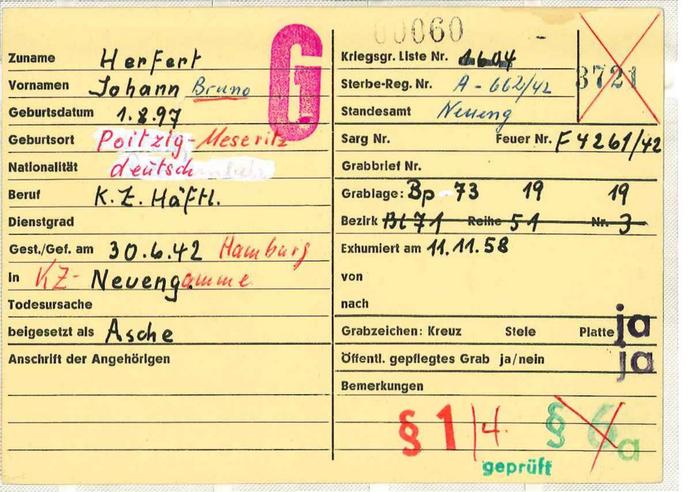 00060 -
G
Zuname Herfert
Vornamen Johann Bruno
Geburtsdatum 1.8.97
Geburtsort Poitzig-Meseritz
Nationalität deutsch
Beruf K.Z. Häftl.
Dienstgrad
Gest./Gef. am 30.6.42 Hamburg
in KZ- Neuengamme
Todesursache
beigesetzt als Asche
Anschrift der Angehörigen
Kriegsgr. Liste Nr. 1604
Sterbe-Reg. Nr. A-662/42 3721
Standesamt Neueng
Sarg Nr. Feuer Nr. F4261/42
Grabbrief Nr.
Grablage: Bp 73 19 19
Bezirk Bl 71 Reihe 51 Nr. 3
Exhumiert am 11.11.58
von
nach
Grabzeichen: Kreuz Stele Platte ja
Öffentl. gepflegtes Grab ja/nein ja
Bemerkungen
§ 1/4. § 6a
geprüft